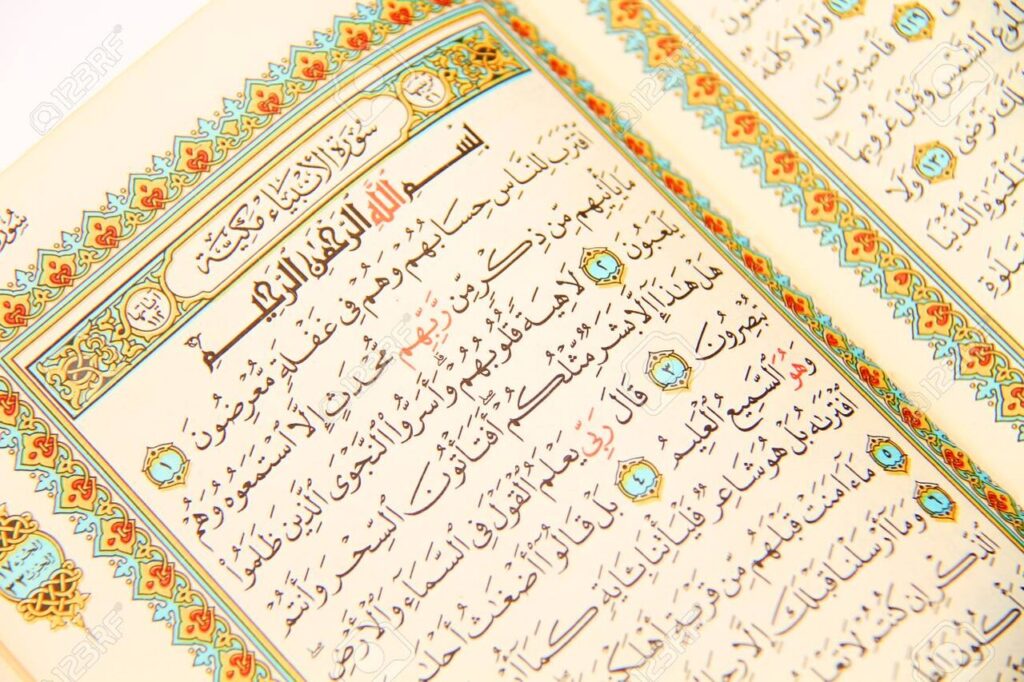 سُورَةُ الْأَنْبِيَاءِ مَكِّيَّة
بِسْمِ اللَّهِ الرَّحْمَٰنِ الرَّحِيمِ
ٱقْتَرَبَ لِلنَّاسِ حِسَابُهُمْ وَهُمْ فِى غَفْلَةٍ مُّعْرِضُونَ ١
مَا يَأْتِيهِم مِّن ذِكْرٍ مِّن رَّبِّهِم مُّحْدَثٍ إِلَّا ٱسْتَمَعُوهُ وَهُمْ
يَلْعَبُونَ ٢ لَاهِيَةً قُلُوبُهُمْ وَأَسَرُّوا۟ ٱلنَّجْوَى ٱلَّذِينَ ظَلَمُوا۟
هَلْ هَٰذَآ إِلَّا بَشَرٌ مِّثْلُكُمْ أَفَتَأْتُونَ ٱلسِّحْرَ وَأَنتُمْ
تُبْصِرُونَ ٣ قَالَ رَبِّى يَعْلَمُ ٱلْقَوْلَ فِى ٱلسَّمَآءِ وَٱلْأَرْضِ
وَهُوَ ٱلسَّمِيعُ ٱلْعَلِيمُ ٤ بَلْ قَالُوٓا۟ أَضْغَٰثُ
ٱفْتَرَىٰهُ بَلْ هُوَ شَاعِرٌ فَلْيَأْتِنَا بِـَٔايَةٍ كَمَآ
٥ مَآ ءَامَنَتْ قَبْلَهُم مِّن قَرْيَةٍ
٦ وَمَآ أَرْسَلْنَا قَبْلَكَ إِلَّا
ٱلذِّكْرِ إِن كُنتُمْ لَا
وَلَوْلَا كَلِمَةٌ
١٢٩ فَٱصْبِرْ عَلَىٰ
ٱلشَّمْسِ وَقَبْلَ غُرُوبِهَا
تَرْضَىٰ ١٣٠ وَلَا
ٱلْحَيَوٰةِ ٱلدُّنْيَا
123RF